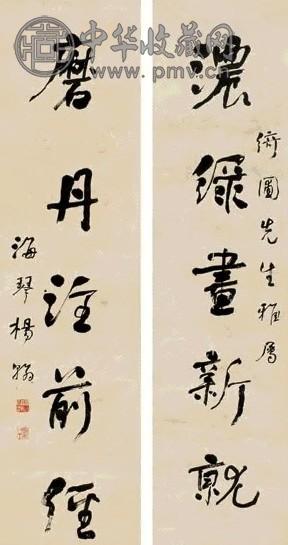 中华收藏网
www.pmv.cn
先生雅屬
濃綠畫新就
磨丹注前經
海琴楊翰